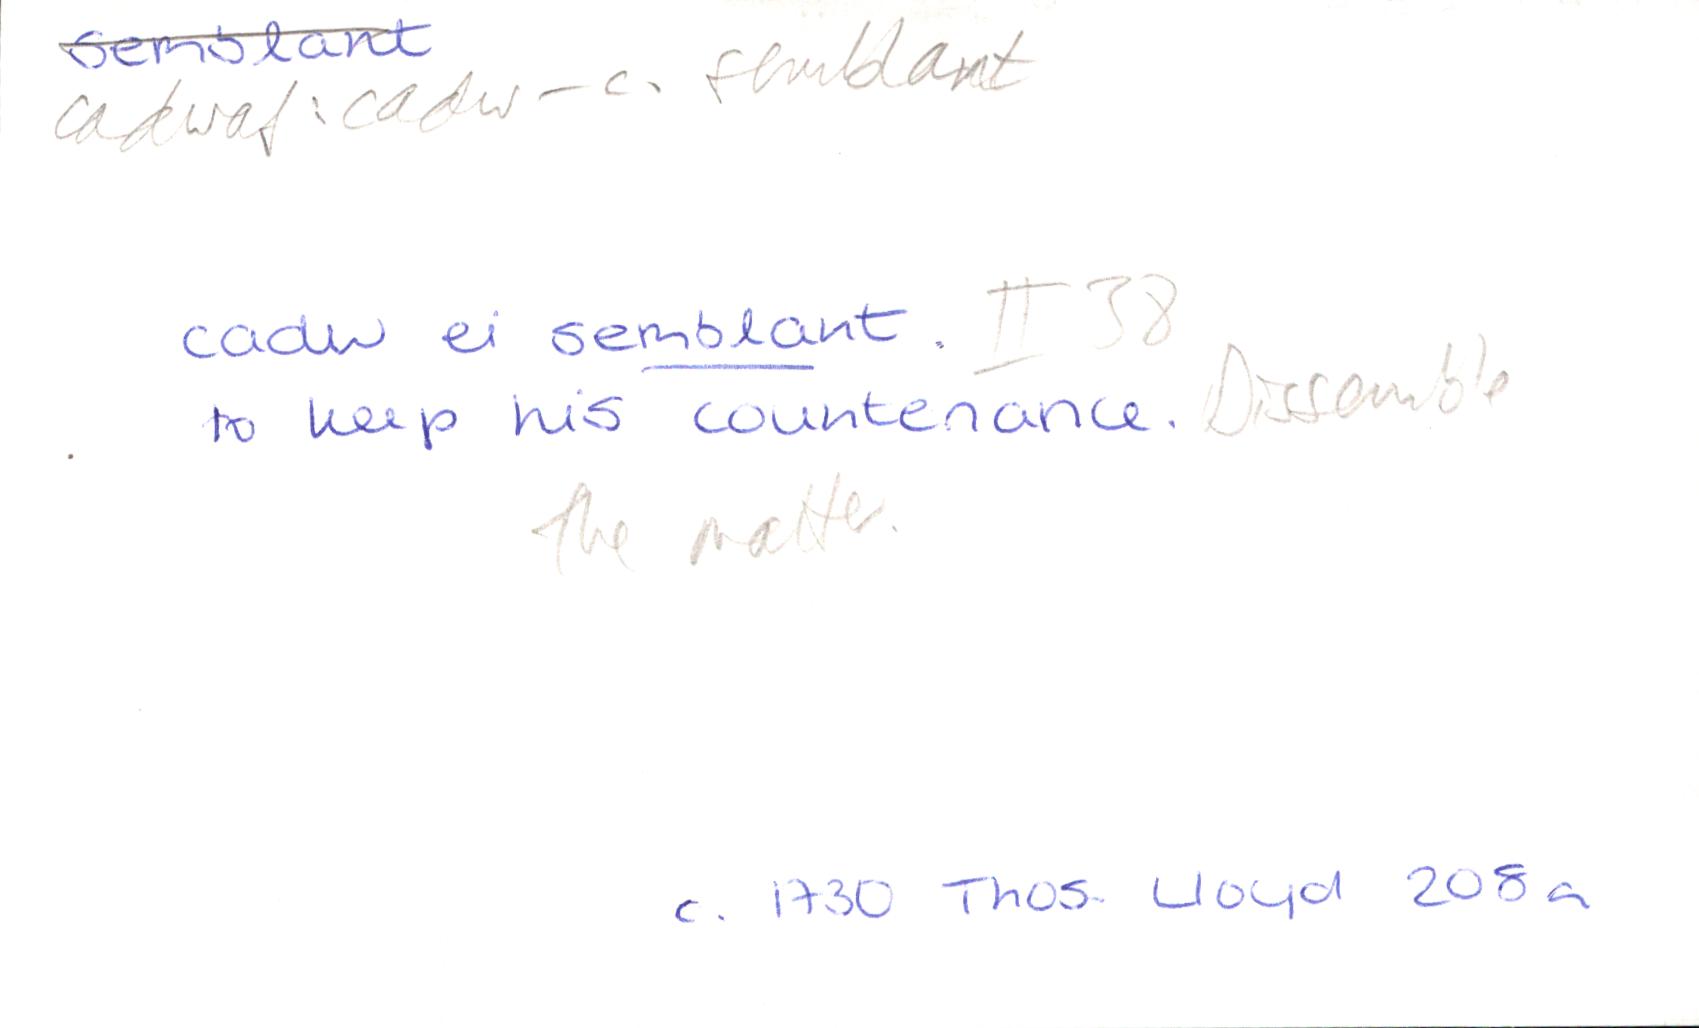 semblant
cadwaf: cadw - c. semblant
cadw ei semblant. II 38
to keep his countenance. Dissemble
the matter.
c. 1730 Thos. Lloyd 208a